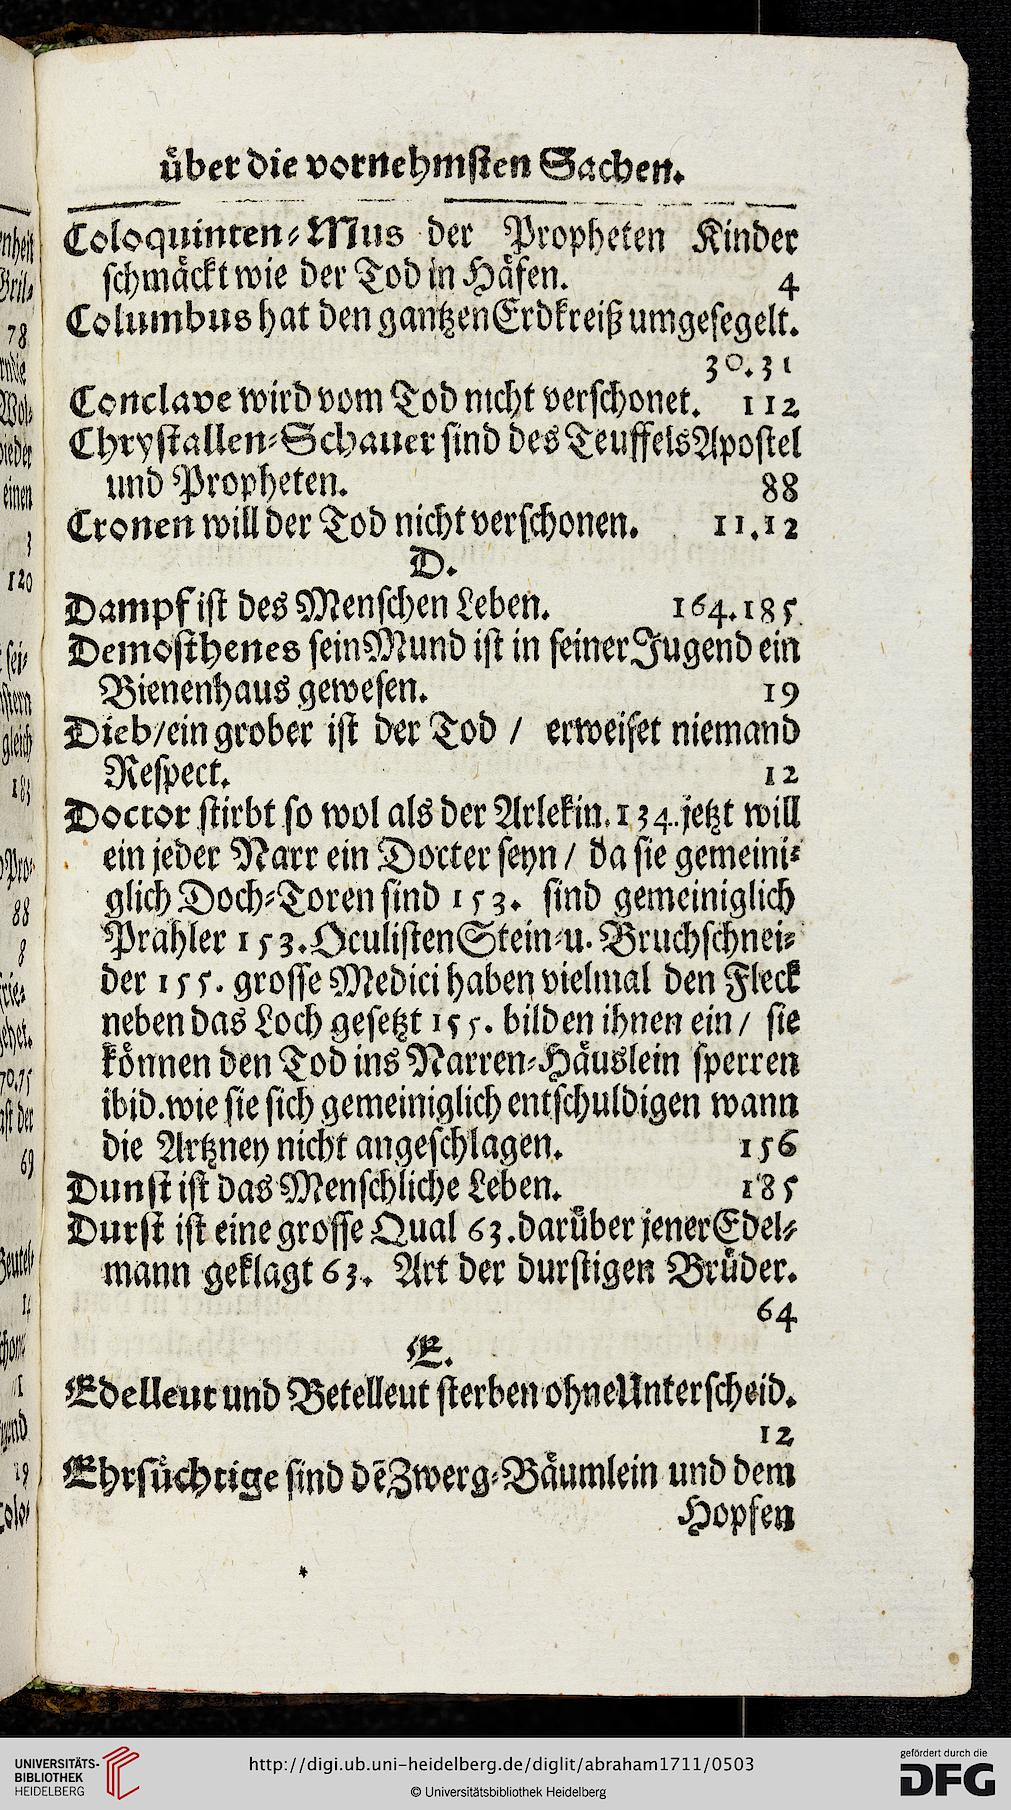 über die vornehmsten Sachen.
Coloquinten-Mus der Propheten Kinder
schmäckt wie der Tod in Häfen. 4
Columbus hat den gantzen Erdkreiß umgesegelt.
30.31
Conclave wird vom Tod nicht verschonet. 112
Chrystallen-Schauer sind des Teuffels Apostel
und Propheten. 88
Cronen will der Tod nicht verschonen. 11.12
D.
Dampf ist des Menschen Leben. 164.185.
Demosthenes sein Mund ist in seiner Jugend ein
Bienenhaus gewesen. 19
Dieb/ein grober ist der Tod / erweiset niemand
Respect. 12
Doctor stirbt so wol als der Arlekin. 134. jetzt will
ein jeder Narr ein Docter seyn / da sie gemeini-
glich Doch-Toren sind 153. sind gemeiniglich
Prahler 153. Oculisten Stein-u. Bruchschnei-
der 155. grosse Medici haben vielmal den Fleck
neben das Loch gesetzt 155. bilden ihnen ein / sie
können den Tod ins Narren-Häuslein sperren
ibid. wie sie sich gemeiniglich entschuldigen wann
die Artzney nicht angeschlagen. 156
Dunst ist das Menschliche Leben. 185
Durst ist eine grosse Qual 63. darüber jener Edel-
mann geklagt 63. Art der durstigen Brüder.
64
E.
Edelleut und Betelleut sterben ohne Unterscheid.
12
Ehrsüchtige sind dē Zwerg-Bäumlein und dem
Hopfen
78
einen
3
120
gleich
183
88
8
70.75
69
19
UNIVERSITÄTS-
BIBLIOTHEK
HEIDELBERG
http://digi.ub.uni-heidelberg.de/diglit/abraham1711/0503
© Universitätsbibliothek Heidelberg
gefördert durch die
DFG